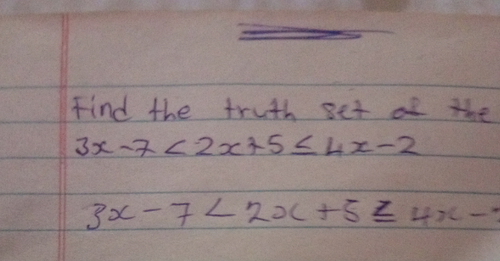 Find the truth set of the
3x-7<2x+5≤4x-2
3x-7<2x+5≤4x-